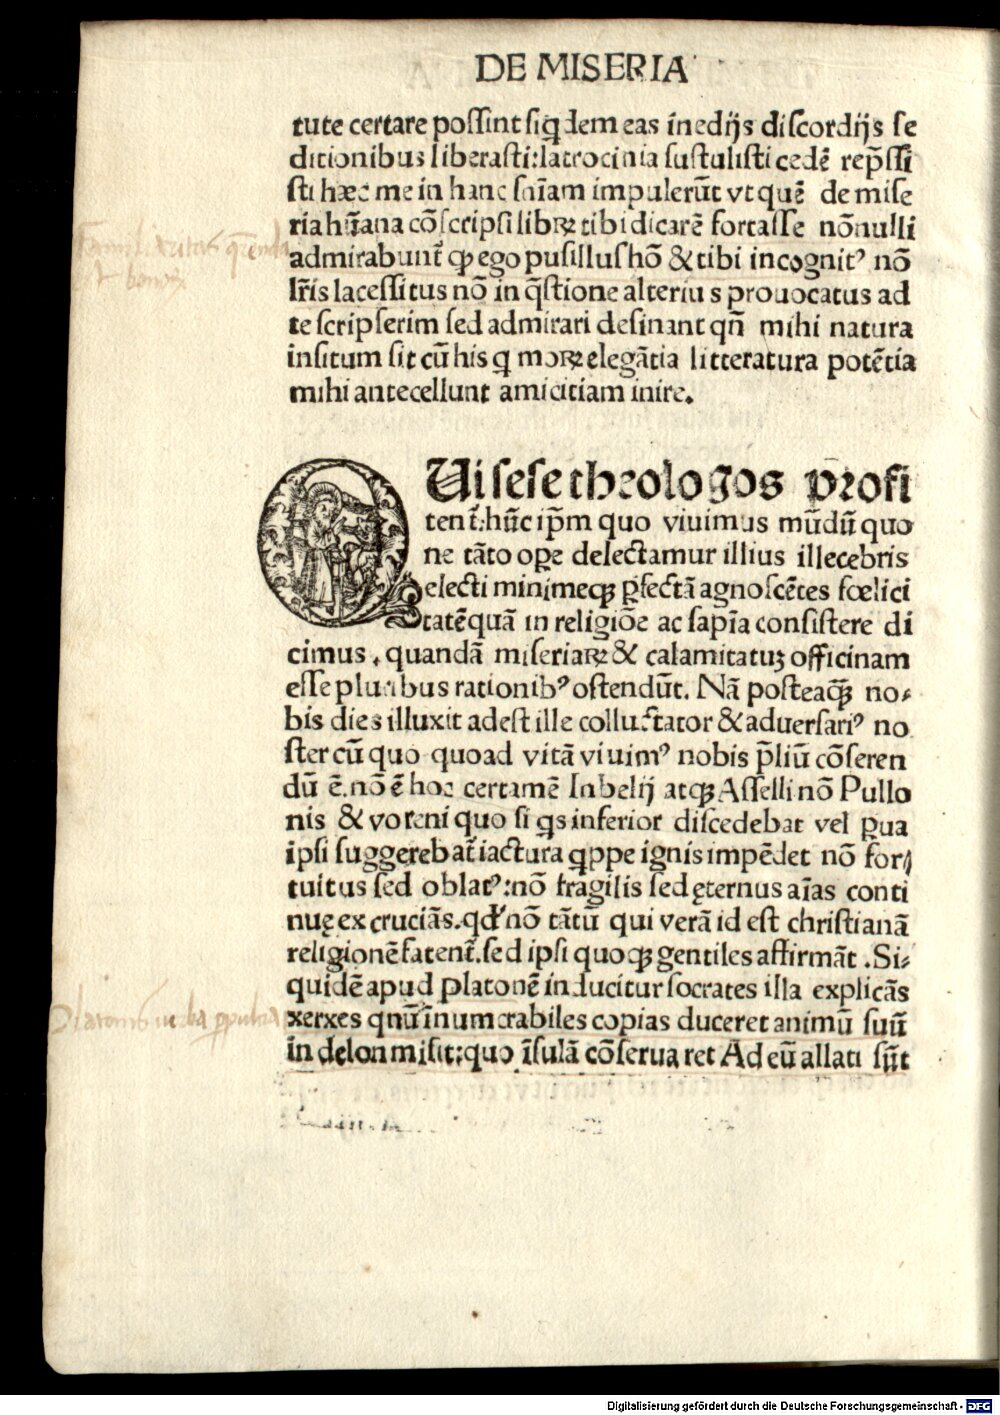 DE MISERIA
tute certare possint siqdem eas inedijs discordijs se
ditionibus liberasti:latrocinia sustulisti cedē rep̄ssi
sti hæc me in hanc snīam impulerūt vt quē de mise
ria hūana cōscripsi librꝝ tibi dicarē fortasse nōnulli
admirabunt̄ ꝙ ego pusillus hō & tibi incognitꝰ nō
lr̄is lacessitus nō in q̄stione alterius prouocatus ad
te scripserim sed admirari desinant qn̄ mihi natura
insitum sit cū his q morꝝ elegātia litteratura potētia
mihi antecellunt amicitiam inire.
QVi sese theologos profi
tent̄:hūc ip̄m quo viuimus mūdū quo
ne tāto oꝑe delectamur illius illecebris
electi minimeqꝫ ꝑfectā agnoscētes fœlici
tatē quā in religiōe ac sapīa consistere di
cimus, quandā miseriaꝝ & calamitatuꝫ officinam
esse pluribus rationibꝰ ostendūt. Nā posteaqꝫ̄ no⸗
bis dies illuxit adest ille colluctator & aduersariꝰ no
ster cū quo quoad vitā viuimꝰ nobis p̄liū cōseren
dū ē. nō ē hoc certamē Inbelij atqꝫ Asselli nō Pullo
nis & voreni quo si qs inferior discedebat vel ꝑua
ipsi suggerebat̄ iactura qppe ignis impēdet nō for⸗
tuitus sed oblatꝰ:nō fragilis sed ęternus aīas conti
nuę excruciās.qd' nō tātū qui verā id est christianā
religionē fatent̄.sed ipsi quoqꝫ gentiles affirmāt .Si⸗
quidē apud platonē inducitur socrates illa explicās
xerxes qnū īnumerabiles copias duceret animū suū
in delon misit:quo īsulā cōseruaret Ad eū allati sūt
Platonis verba
Digitalisierung gefördert durch die Deutsche Forschungsgemeinschaft - DFG